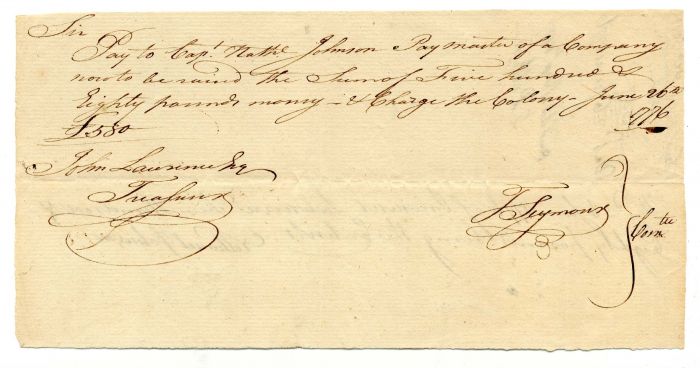 Sir
Pay to Capt Nathl Johnson Paymaster of a Company
now to be raised the Sum of Five hundred &
Eighty pounds money - & Charge the Colony - June 26th
£580 1776
John Lawrence Esq
Treasurer
T Seymour } Comtte